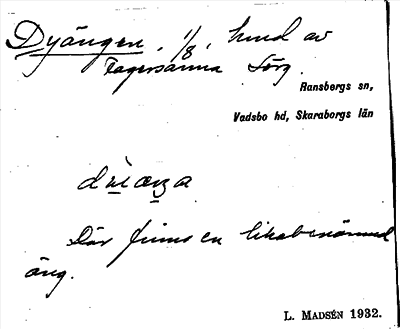 Dyängen, 1/8, hmd av
Fagersanna Sörg.
Ransbergs sn,
Vadsbo hd, Skaraborgs län
Där finns en likabenämnd
äng.
L. MADSÉN 1932.